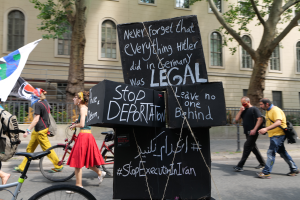 Never forget that
everything Hitler
did in Germany
was LEGAL
STOP
DEPORTATION
Leave no
one
Behind
#اعدام_نکنید
#StopExecutionInIran